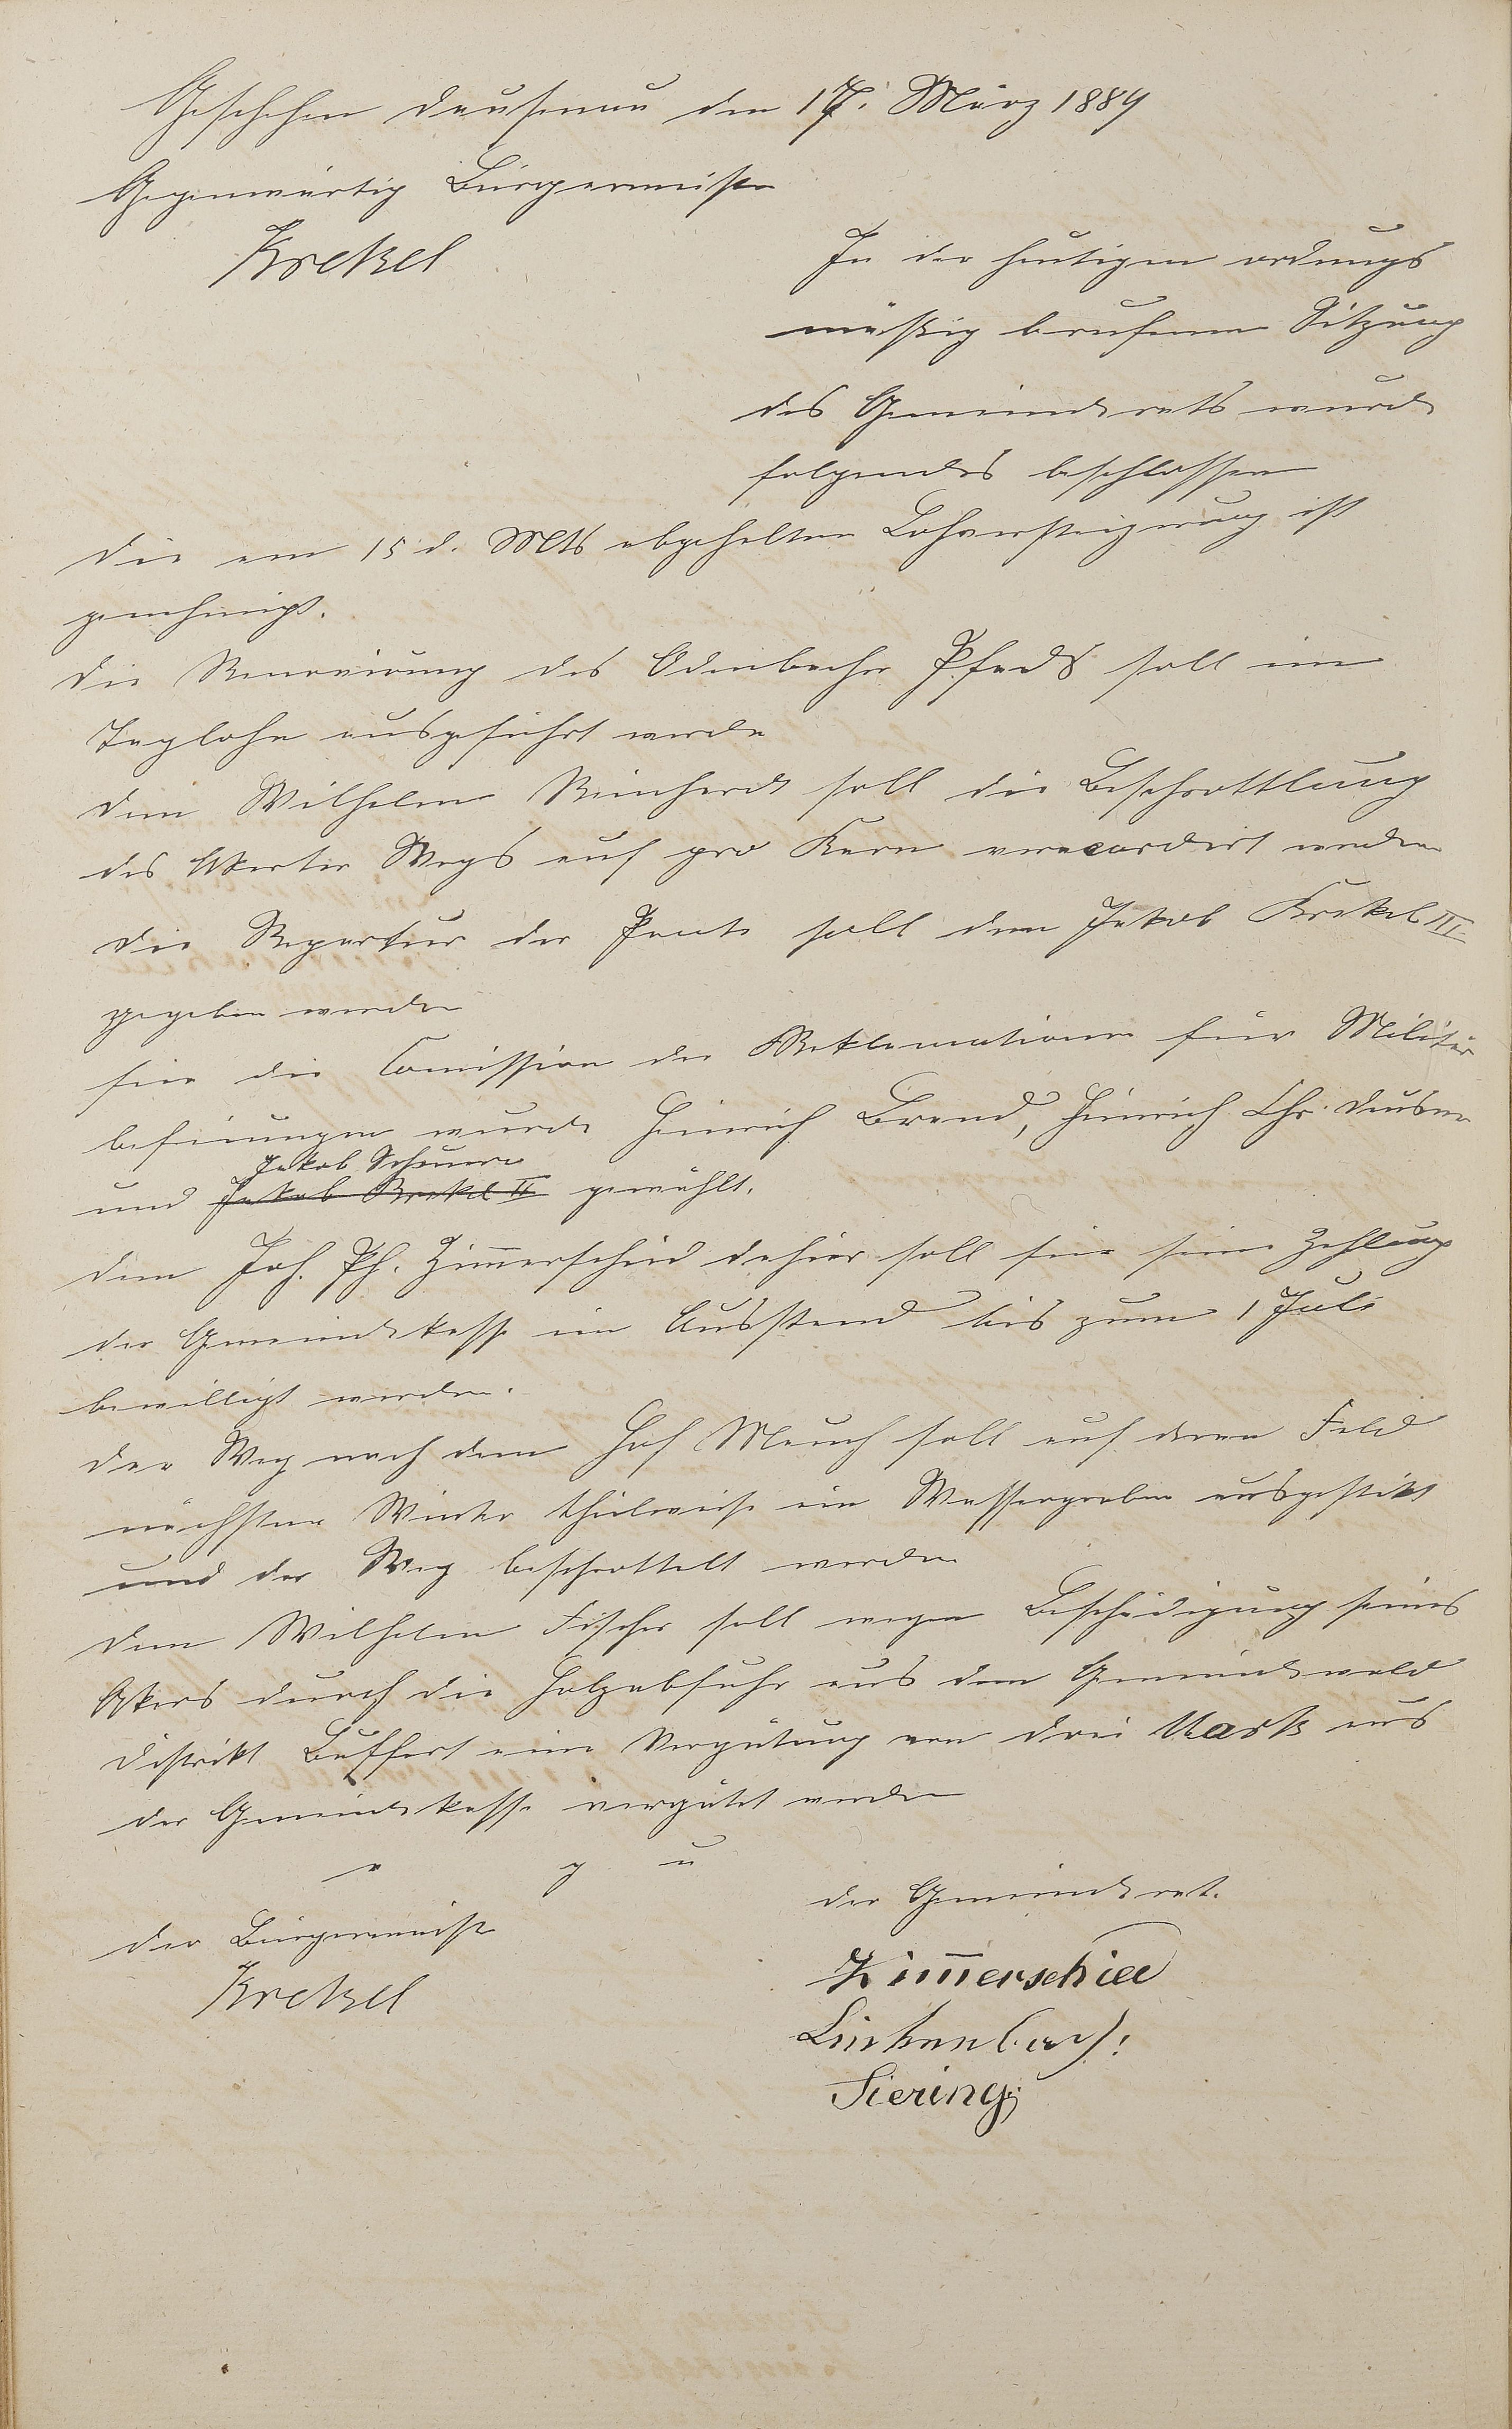 Geschehen Dausenau den 17. März 1889
Gegenwärtig Bürgermeister
Krekel
In der heutigen ordnungs
mäßig berufenen Sitzung
des Gemeinderats wurde
folgendes beschlossen
Die am 15 d. Mts abgehaltene Lohversteigerung ist
genehmigt.
Die Renovirung des Odenbacher Pfads soll im
Taglohn ausgeführt werden
Dem Wilhelm Reinhardt soll die Beschrottlung
des Wegs auf pro veraccordirt werden
Die Reparatur der soll dem Jakob Krekel III
gegeben werden
für die Comission der Reklamationen für Militär
befreiungen wurde Heinrich Brand, Heinrich Chr. Deusner
Jakob Scheurer
und Jakob Krekel II gewählt.
Dem Joh. Ph. Zimmerscheid dahier soll für seine Zahlung
der Gemeindekasse ein Ausstand bis zum 1 Juli
bewilligt werden.
Der Weg nach dem Hof Mauch soll auf deren Feld
nächsten Winter theilweise ein Wassergraben ausgestikt
und der Weg beschrottelt werden
Dem Wilhelm Fischer soll wegen Beschädigung seines
Akers durch die Holzabfuhr aus dem Gemeindewald
Distrikt Buffert eine Vergütung von drei Mark aus
der Gemeindekasse vergütet werden
v g u
Der Gemeinderat.
Der Bürgermeister
Zimerschied
Krekel
Linkenbach:
Siering